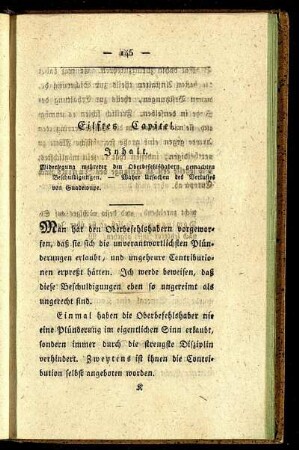 — 145 —
Eilftes Capitel.
Inhalt.
Widerlegung mehrerer den Oberbefehlshabern gemachten
Beschuldigungen. — Wahre Ursachen des Verlustes
von Guadeloupe.
Man hat den Oberbefehlshabern vorgewor-
fen, daß sie sich die unverantwortlichsten Plün-
derungen erlaubt, und ungeheure Contributio-
nen erpreßt hätten. Ich werde beweisen, daß
diese Beschuldigungen eben so ungereimt als
ungerecht sind.
Einmal haben die Oberbefehlshaber nie
eine Plünderung im eigentlichen Sinn erlaubt,
sondern immer durch die strengste Disziplin
verhindert. Zweytens ist ihnen die Contri-
bution selbst angeboten worden.
K